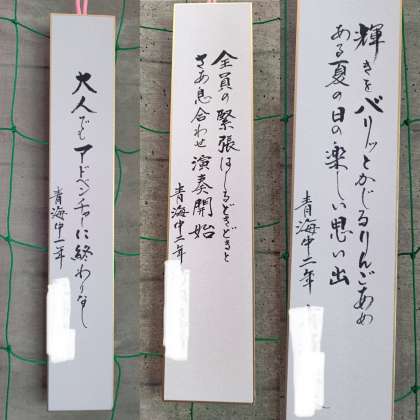 輝きをバリッとかじるりんごあめ
ある夏の日の楽しい思い出
青海中二年
全員の緊張はしるどきどきと
さあ息合わせ演奏開始
青海中二年
大人でもアドベンチャーに終わりなし
青海中一年